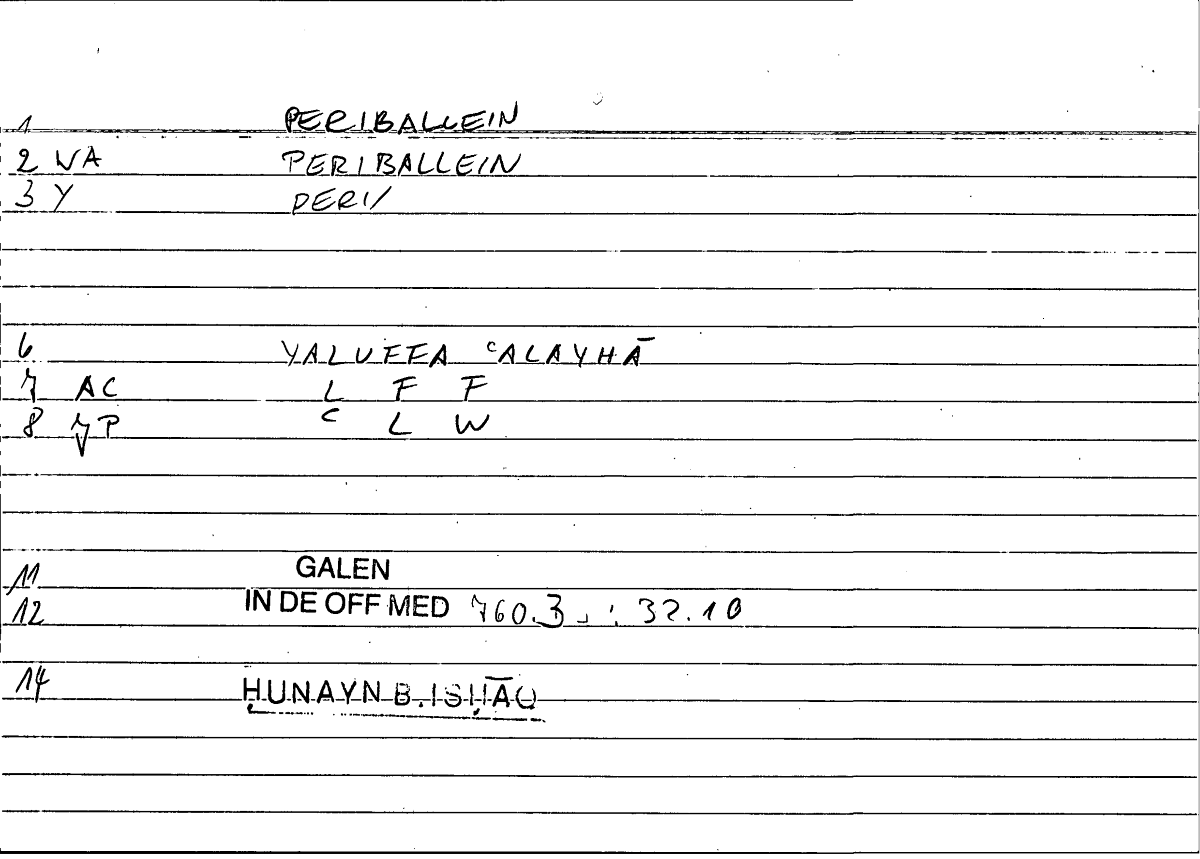 1 PERIBALLEIN
2 VA PERIBALLEIN
3 Y PERI/
6 YALUFFA ʿALAYHĀ
7 AC L F F
8 P ʿ L W
11 GALEN
12 IN DE OFF MED 760.3 : 32.10
14 ḤUNAYN B. ISḤĀQ